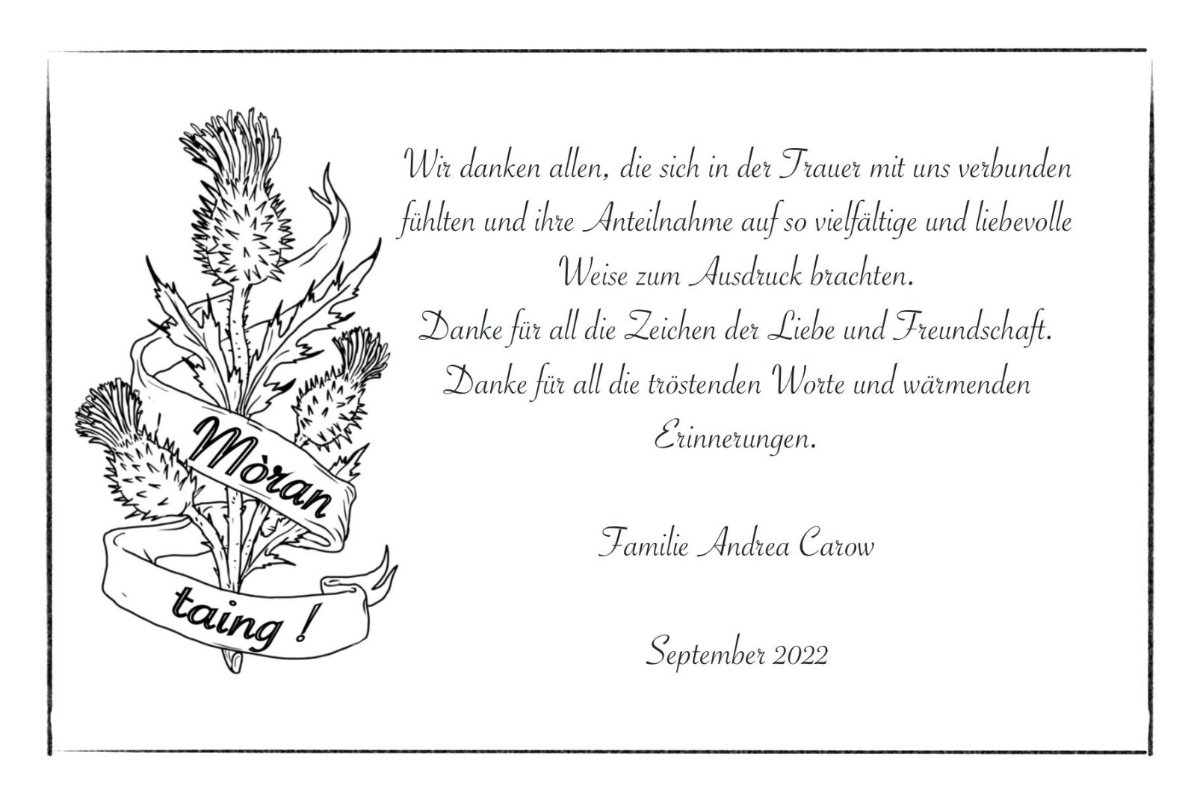 Mòran
taing !
Wir danken allen, die sich in der Trauer mit uns verbunden
fühlten und ihre Anteilnahme auf so vielfältige und liebevolle
Weise zum Ausdruck brachten.
Danke für all die Zeichen der Liebe und Freundschaft.
Danke für all die tröstenden Worte und wärmenden
Erinnerungen.
Familie Andrea Carow
September 2022